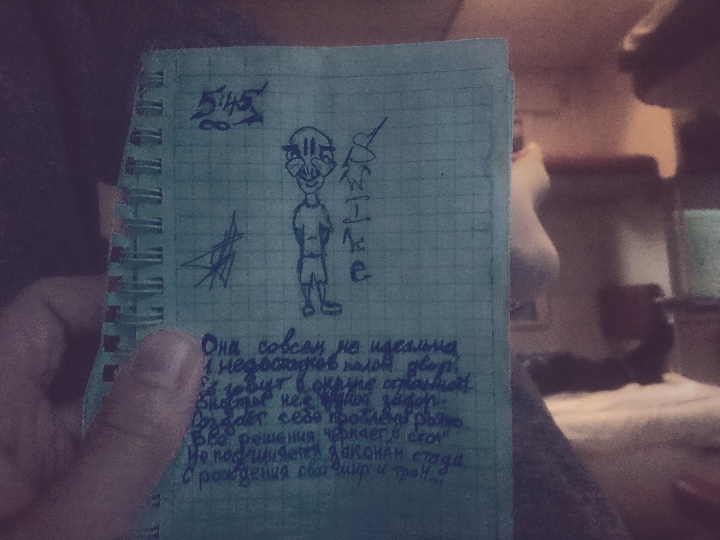 5:45
Swike
Она совсем не идеальна
И недостатков полон двор.
Её зовут в округе странной
её
Создаёт себе проблемы рьяно
Все решения черкает "в стол"
Не подчиняется законам стада
С рождения свой мир и трон...